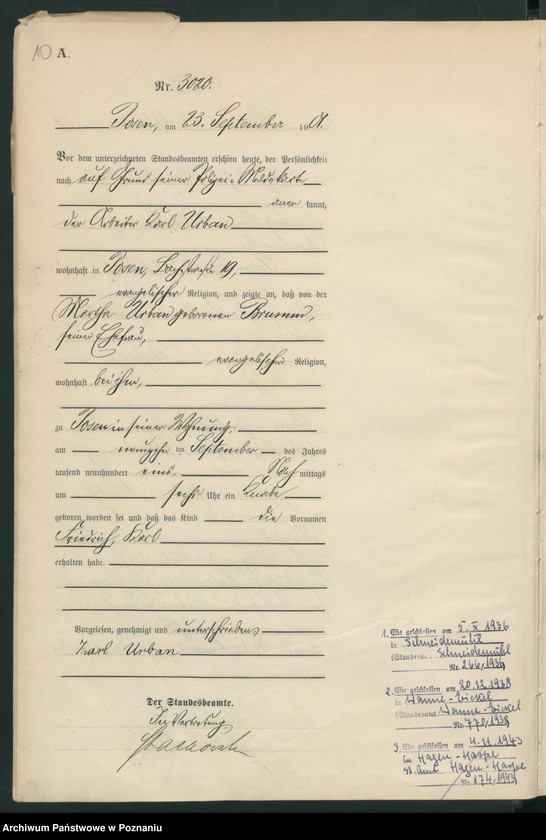 10 A.
Nr. 3020.
Posen, am 23. September 1901.
Vor dem unterzeichneten Standesbeamten erschien heute, der Persönlichkeit
nach auf Grund seiner Polizei-Meldekarte
aner kannt,
der Arbeiter Karl Urban
wohnhaft in Posen, Bachstraße 19,
evangelischer Religion, und zeigte an, daß von der
Martha Urban geborenen Brumm,
seiner Ehefrau,
evangelischer Religion,
wohnhaft bei ihm,
zu Posen in seiner Wohnung
am neunzehn ten September des Jahres
tausend neunhundert eins Nach mittags
um sechs Uhr ein Knabe
geboren worden sei und daß das Kind die Vornamen
Friedrich, Karl
erhalten habe.
Vorgelesen, genehmigt und unterschrieben,
Karl Urban
Der Standesbeamte.
In Vertretung
1. Ehe geschlossen am 5. X 1936
in Schneidemühl
(Standesa. Schneidemühl
Nr. 266/1936)
2. Ehe geschlossen am 20.12.1938
in Wanne-Eickel
(Standesamt Wanne-Eickel
Nr. 770/1938
3. Ehe geschlossen am 4.11.1943
in Hagen-Haspe
St. Amt Hagen-Haspe
Nr. 174/1943)
Archiwum Państwowe w Poznaniu